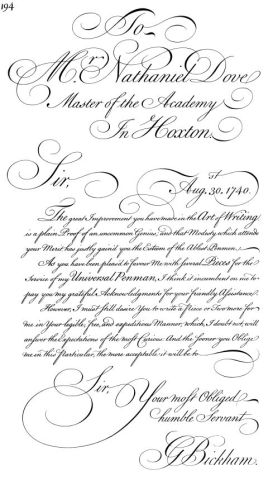 194
To
Mr. Nathaniel Dove
Master of the Academy
In Hoxton.
Sir,
Aug. 30. 1740.
The great Improvement you have made in the Art of Writing
is a plain Proof of an uncommon Genius, and that Modesty which attends
your Merit has justly gain'd you the Esteem of the Ablest Penmen.
As you have been pleas'd to favour Me with several Pieces for the
Service of my Universal Penman, I think it incumbent on me to
pay you my grateful Acknowledgments for your friendly Assistance.
However, I must still desire You to write a Piece or Two more for
me in Your legible, free, and expeditious Manner, which, I doubt not, will
answer the Expectations of the most Curious. And the sooner you Oblige
me in this Particular, the more acceptable it will be to
Sir,
Your most Obliged
humble Servant
G Bickham.